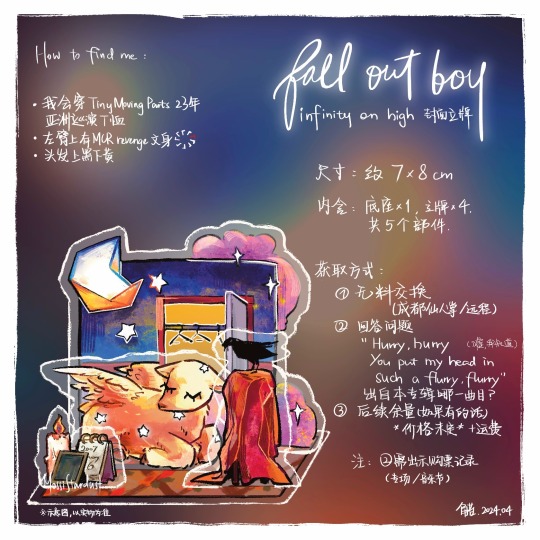 How to find me:
• 我会穿 Tiny Moving Parts 23年
亚洲巡演T恤
• 左臂上有MCR revenge文身
• 头发上黑下黄
fall out boy
infinity on high 封面立牌
尺寸: 约 7×8cm
内含: 底座×1, 立牌×4.
共5个部件.
获取方式:
① 无料交换
(成都仙人掌/远程)
② 回答问题
"Hurry, hurry
You put my head in
such a flurry, flurry"
出自本专辑哪一曲目?
③ 后续余量(如果有的话)
*价格未定*+运费
注: ②需出示购票记录
(专场/音乐节)
2007
Morri Stardust
※示意图,以实物为准
2024.04